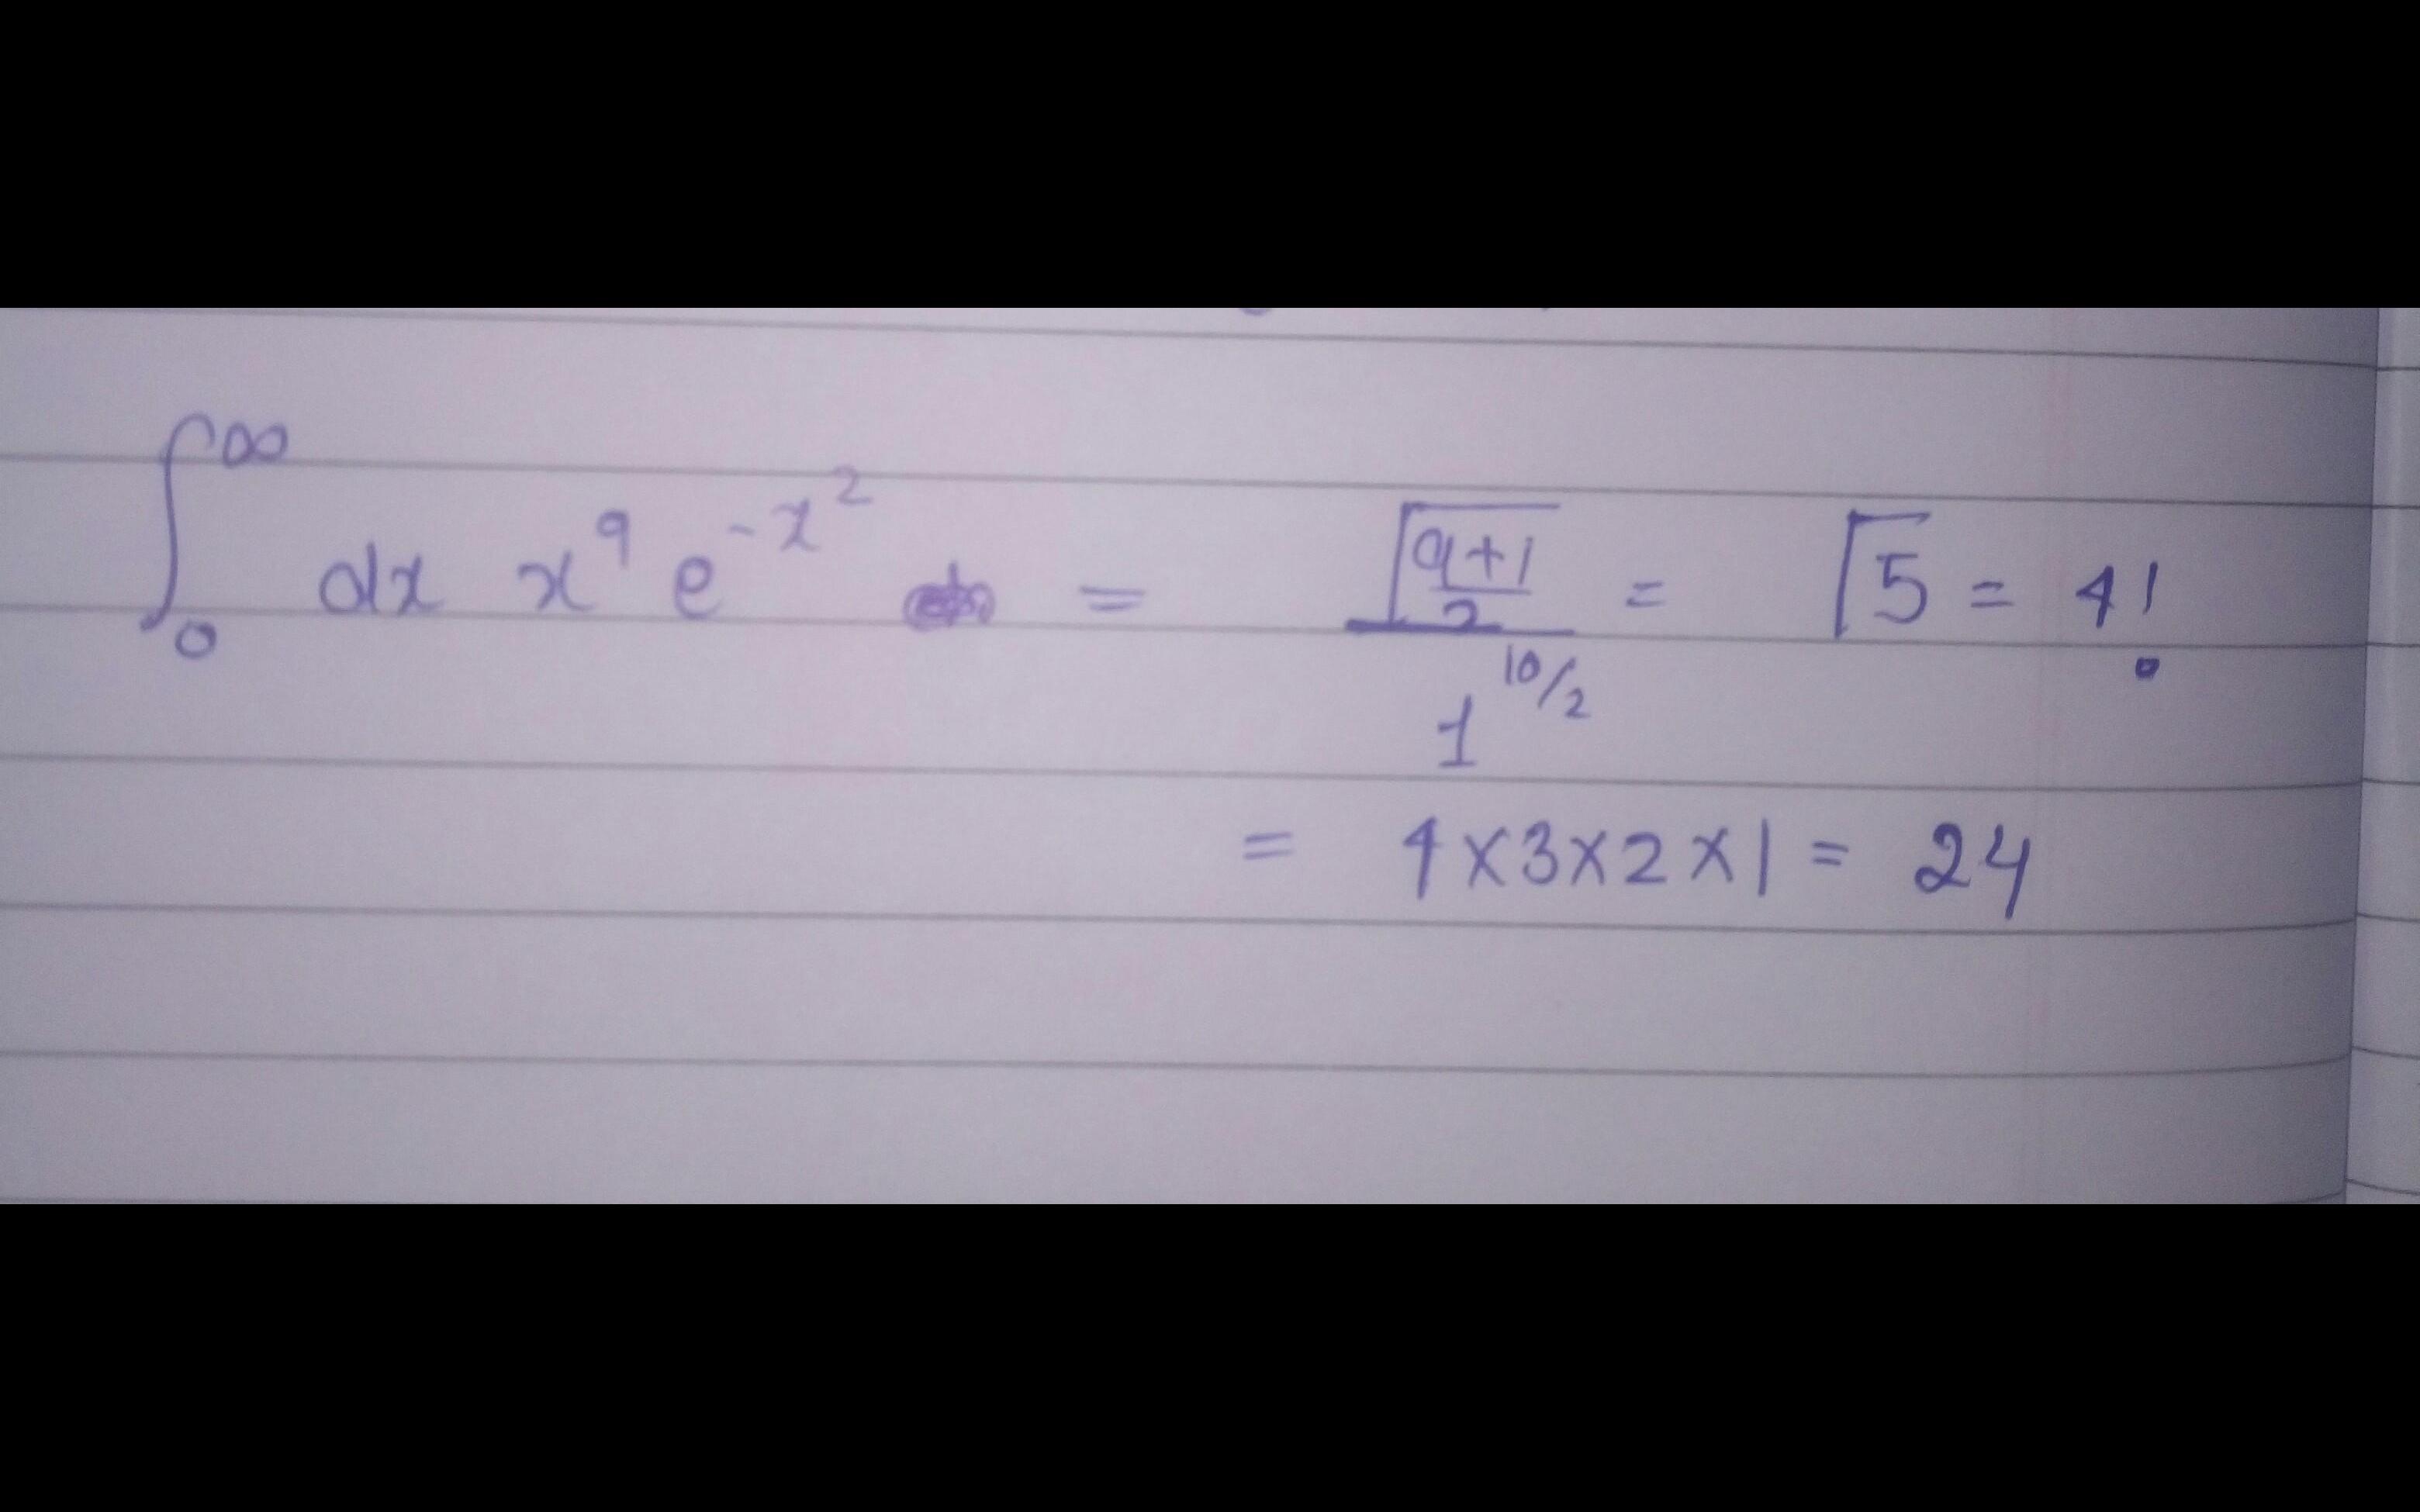 ∫₀^∞ dx x⁹ e^(-x²) = Γ((9+1)/2) / 1^(10/2) = Γ5 = 4!
= 4×3×2×1 = 24